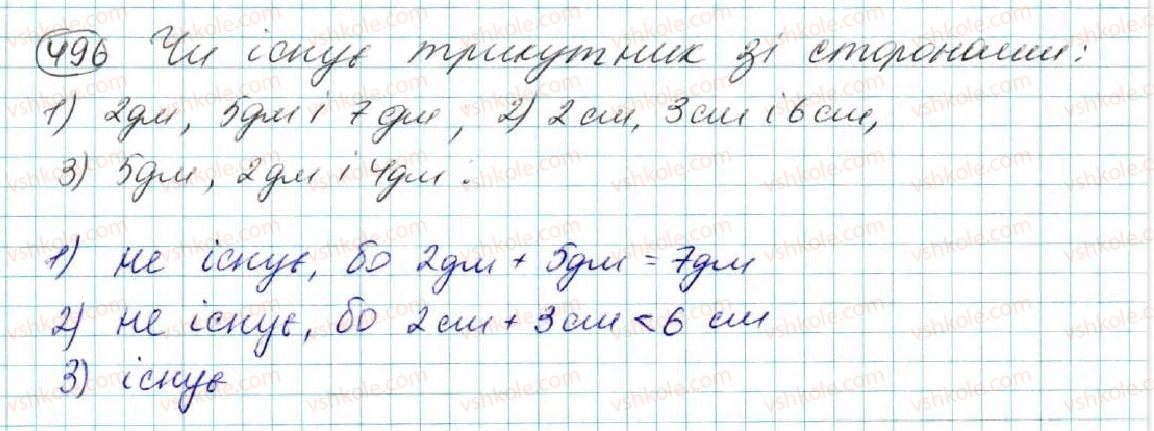 496 Чи існує трикутник зі сторонами:
1) 2дм, 5дм і 7дм, 2) 2см, 3см і 6см,
3) 5дм, 2дм і 4дм.
1) не існує, бо 2дм + 5дм = 7дм
2) не існує, бо 2см + 3см < 6 см
3) існує